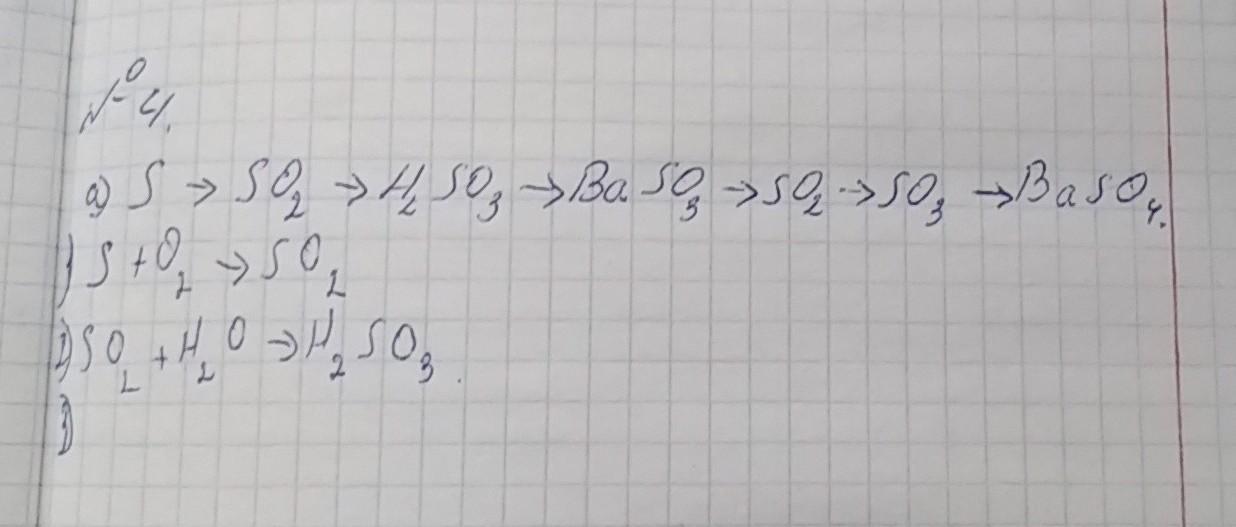 № 4.
a) S → SO₂ → H₂SO₃ → BaSO₃ → SO₂ → SO₃ → BaSO₄.
1) S + O₂ → SO₂
2) SO₂ + H₂O → H₂SO₃.
3)